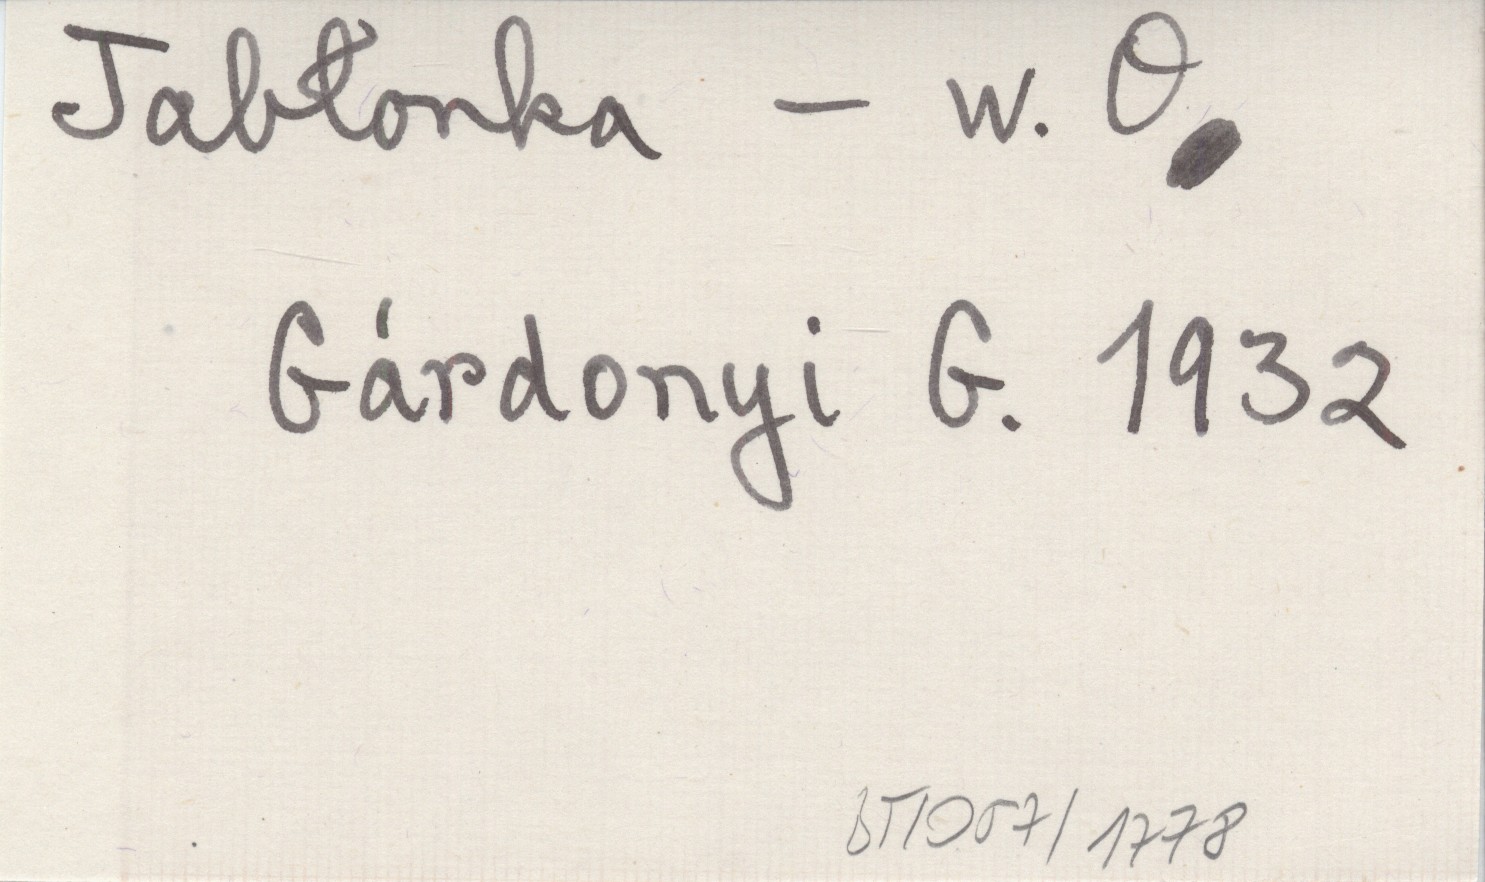 Jabłonka – w. O
Gárdonyi G. 1932
1778